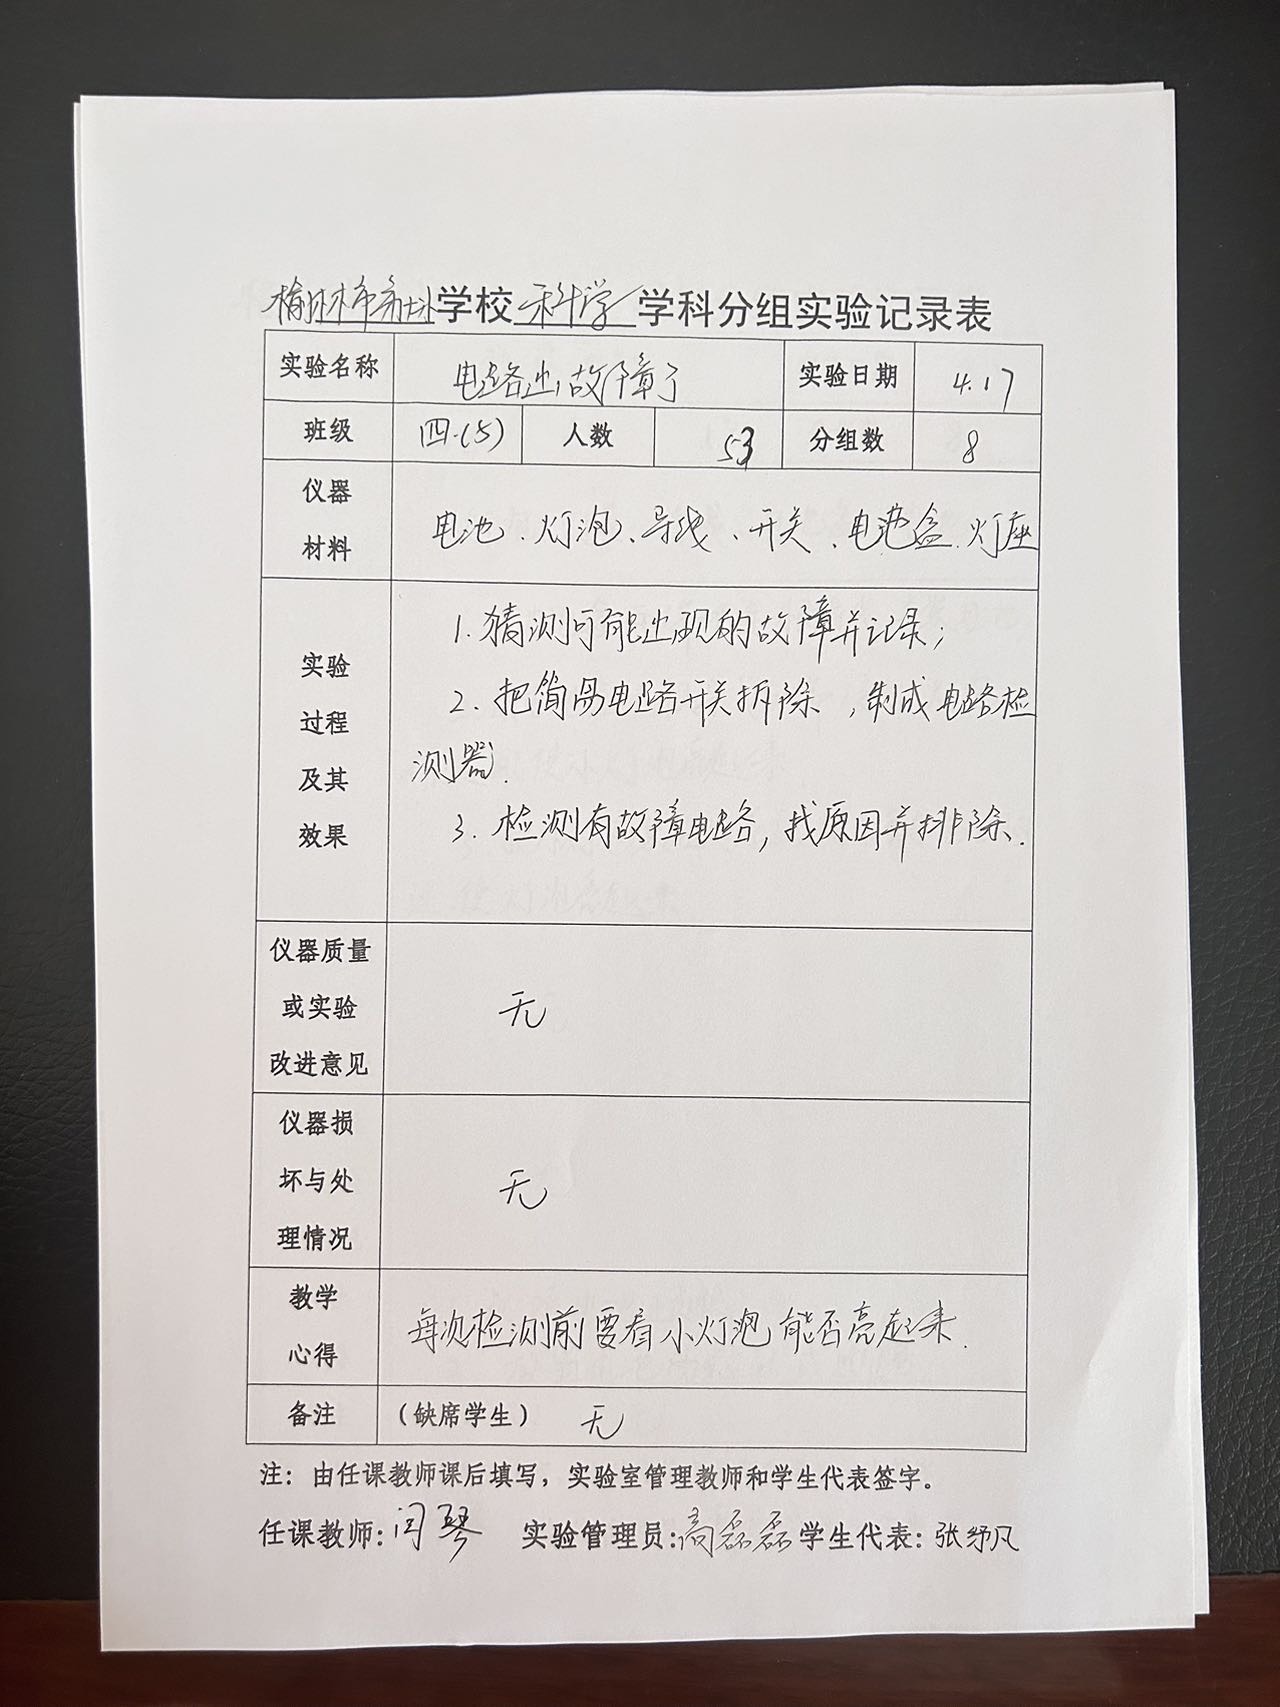 榆林市学校科学学科分组实验记录表
实验名称 电路出故障了 实验日期 4.17
班级 四.(5) 人数 53 分组数 8
仪器
材料
电池、灯泡、导线、开关、电池盒、灯座
实验
过程
及其
效果
1.猜测可能出现的故障并记录；
2.把简易电路开关拆除，制成电路检
测器.
3.检测有故障电路，找原因并排除.
仪器质量
或实验
改进意见
无
仪器损
坏与处
理情况
无
教学
心得
每次检测前要看小灯泡能否亮起来.
备注 (缺席学生) 无
注：由任课教师课后填写，实验室管理教师和学生代表签字。
任课教师：闫琴 实验管理员：高磊磊 学生代表：张凡